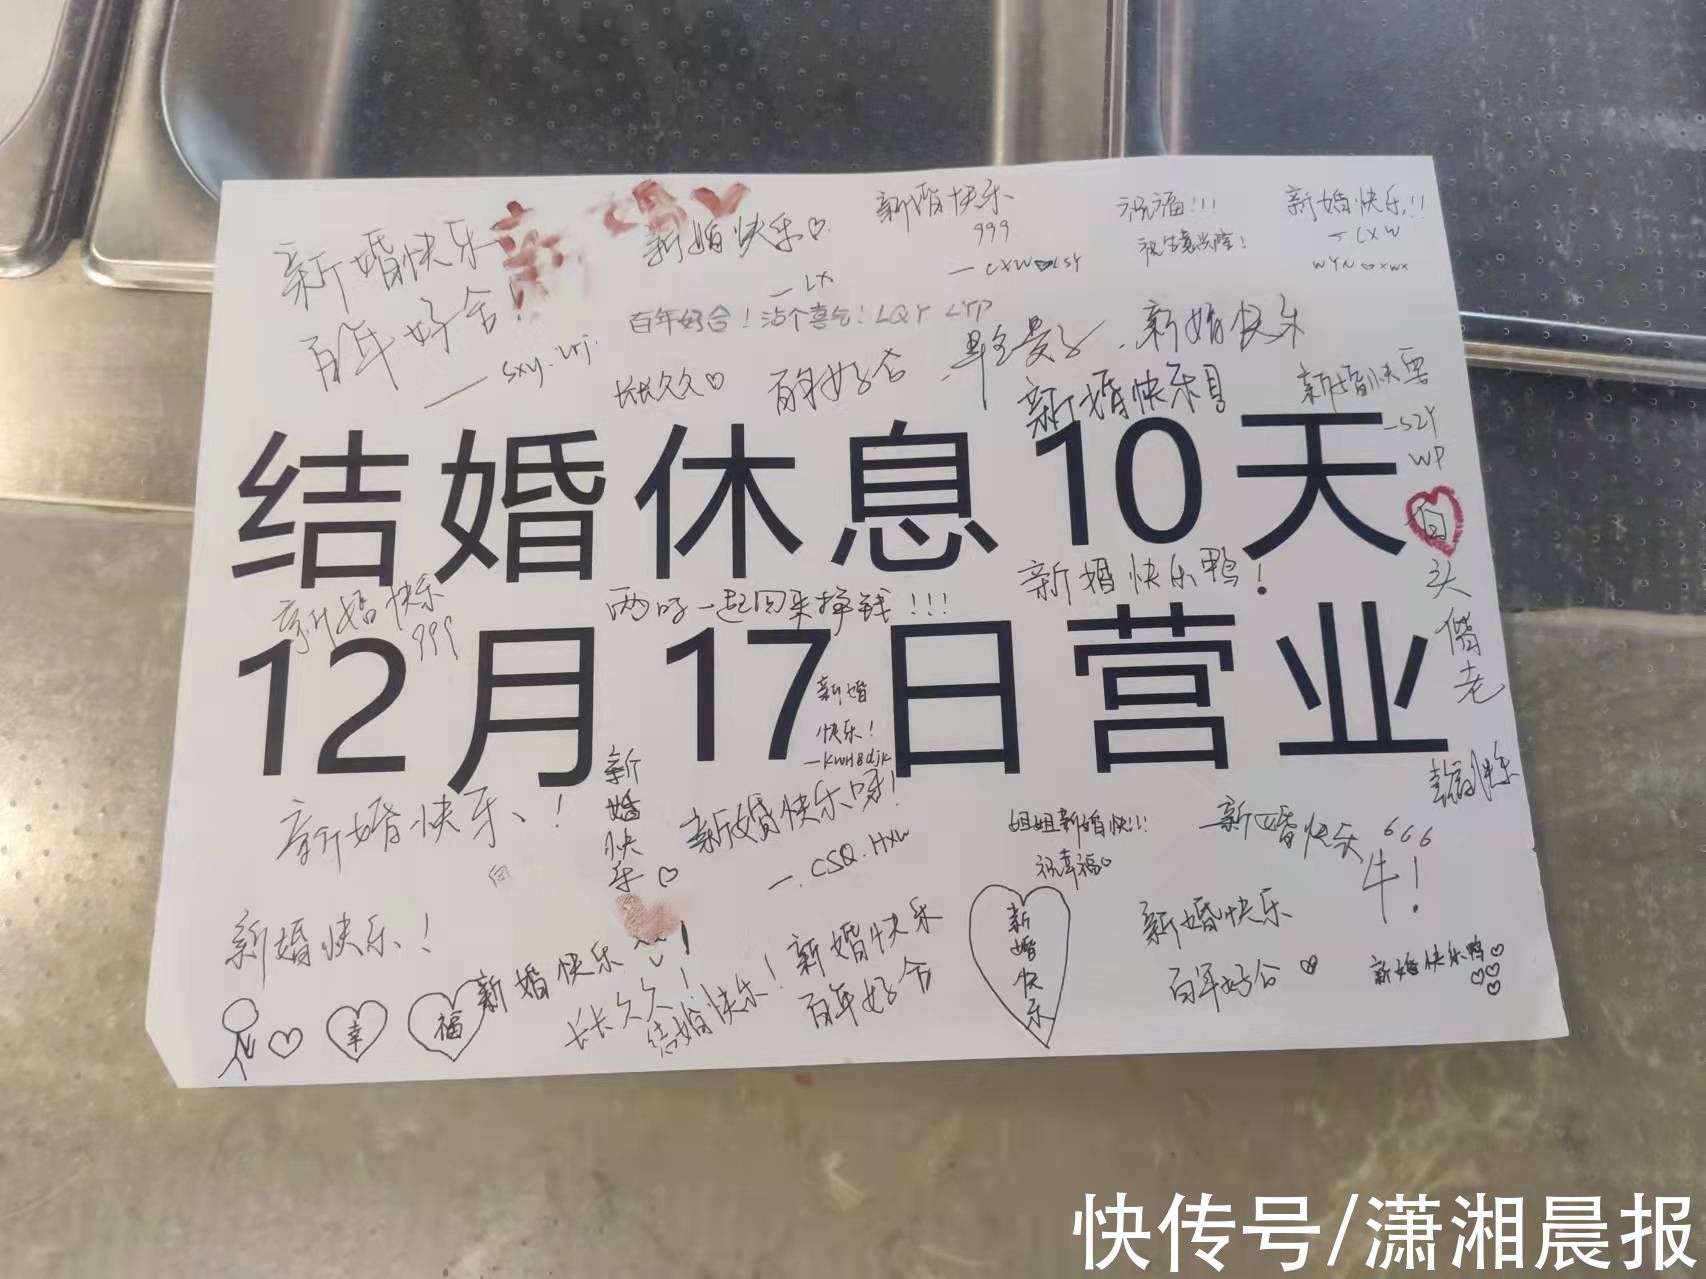 新婚快乐
百年好合!
—sxy.lrj.
新
新婚快乐♡
—LX
新婚快乐
999
祝福!!!
祝生意兴隆!
新婚快乐!!
—CXW
百年好合!沾个喜气!LQY LYP
长长久久♡
百年好合
早生贵子
新婚快乐
新婚快乐
—SZY
WP
结婚休息10天
白头偕老
新婚快乐
999
两口一起回来挣钱!!!
新婚快乐鸭!
12月17日营业
新婚
快乐!
新婚快乐!
新婚快乐♡
新婚快乐呀!
—.CSQ.HXW
姐姐新婚快!!!
祝幸福♡
新婚快乐666
牛!
新婚快乐!
幸
福
新婚快乐
长长久久!
结婚快乐!
新婚快乐
百年好合
新婚快乐
新婚快乐
百年好合♡
新婚快乐鸭♡♡♡♡
快传号/潇湘晨报